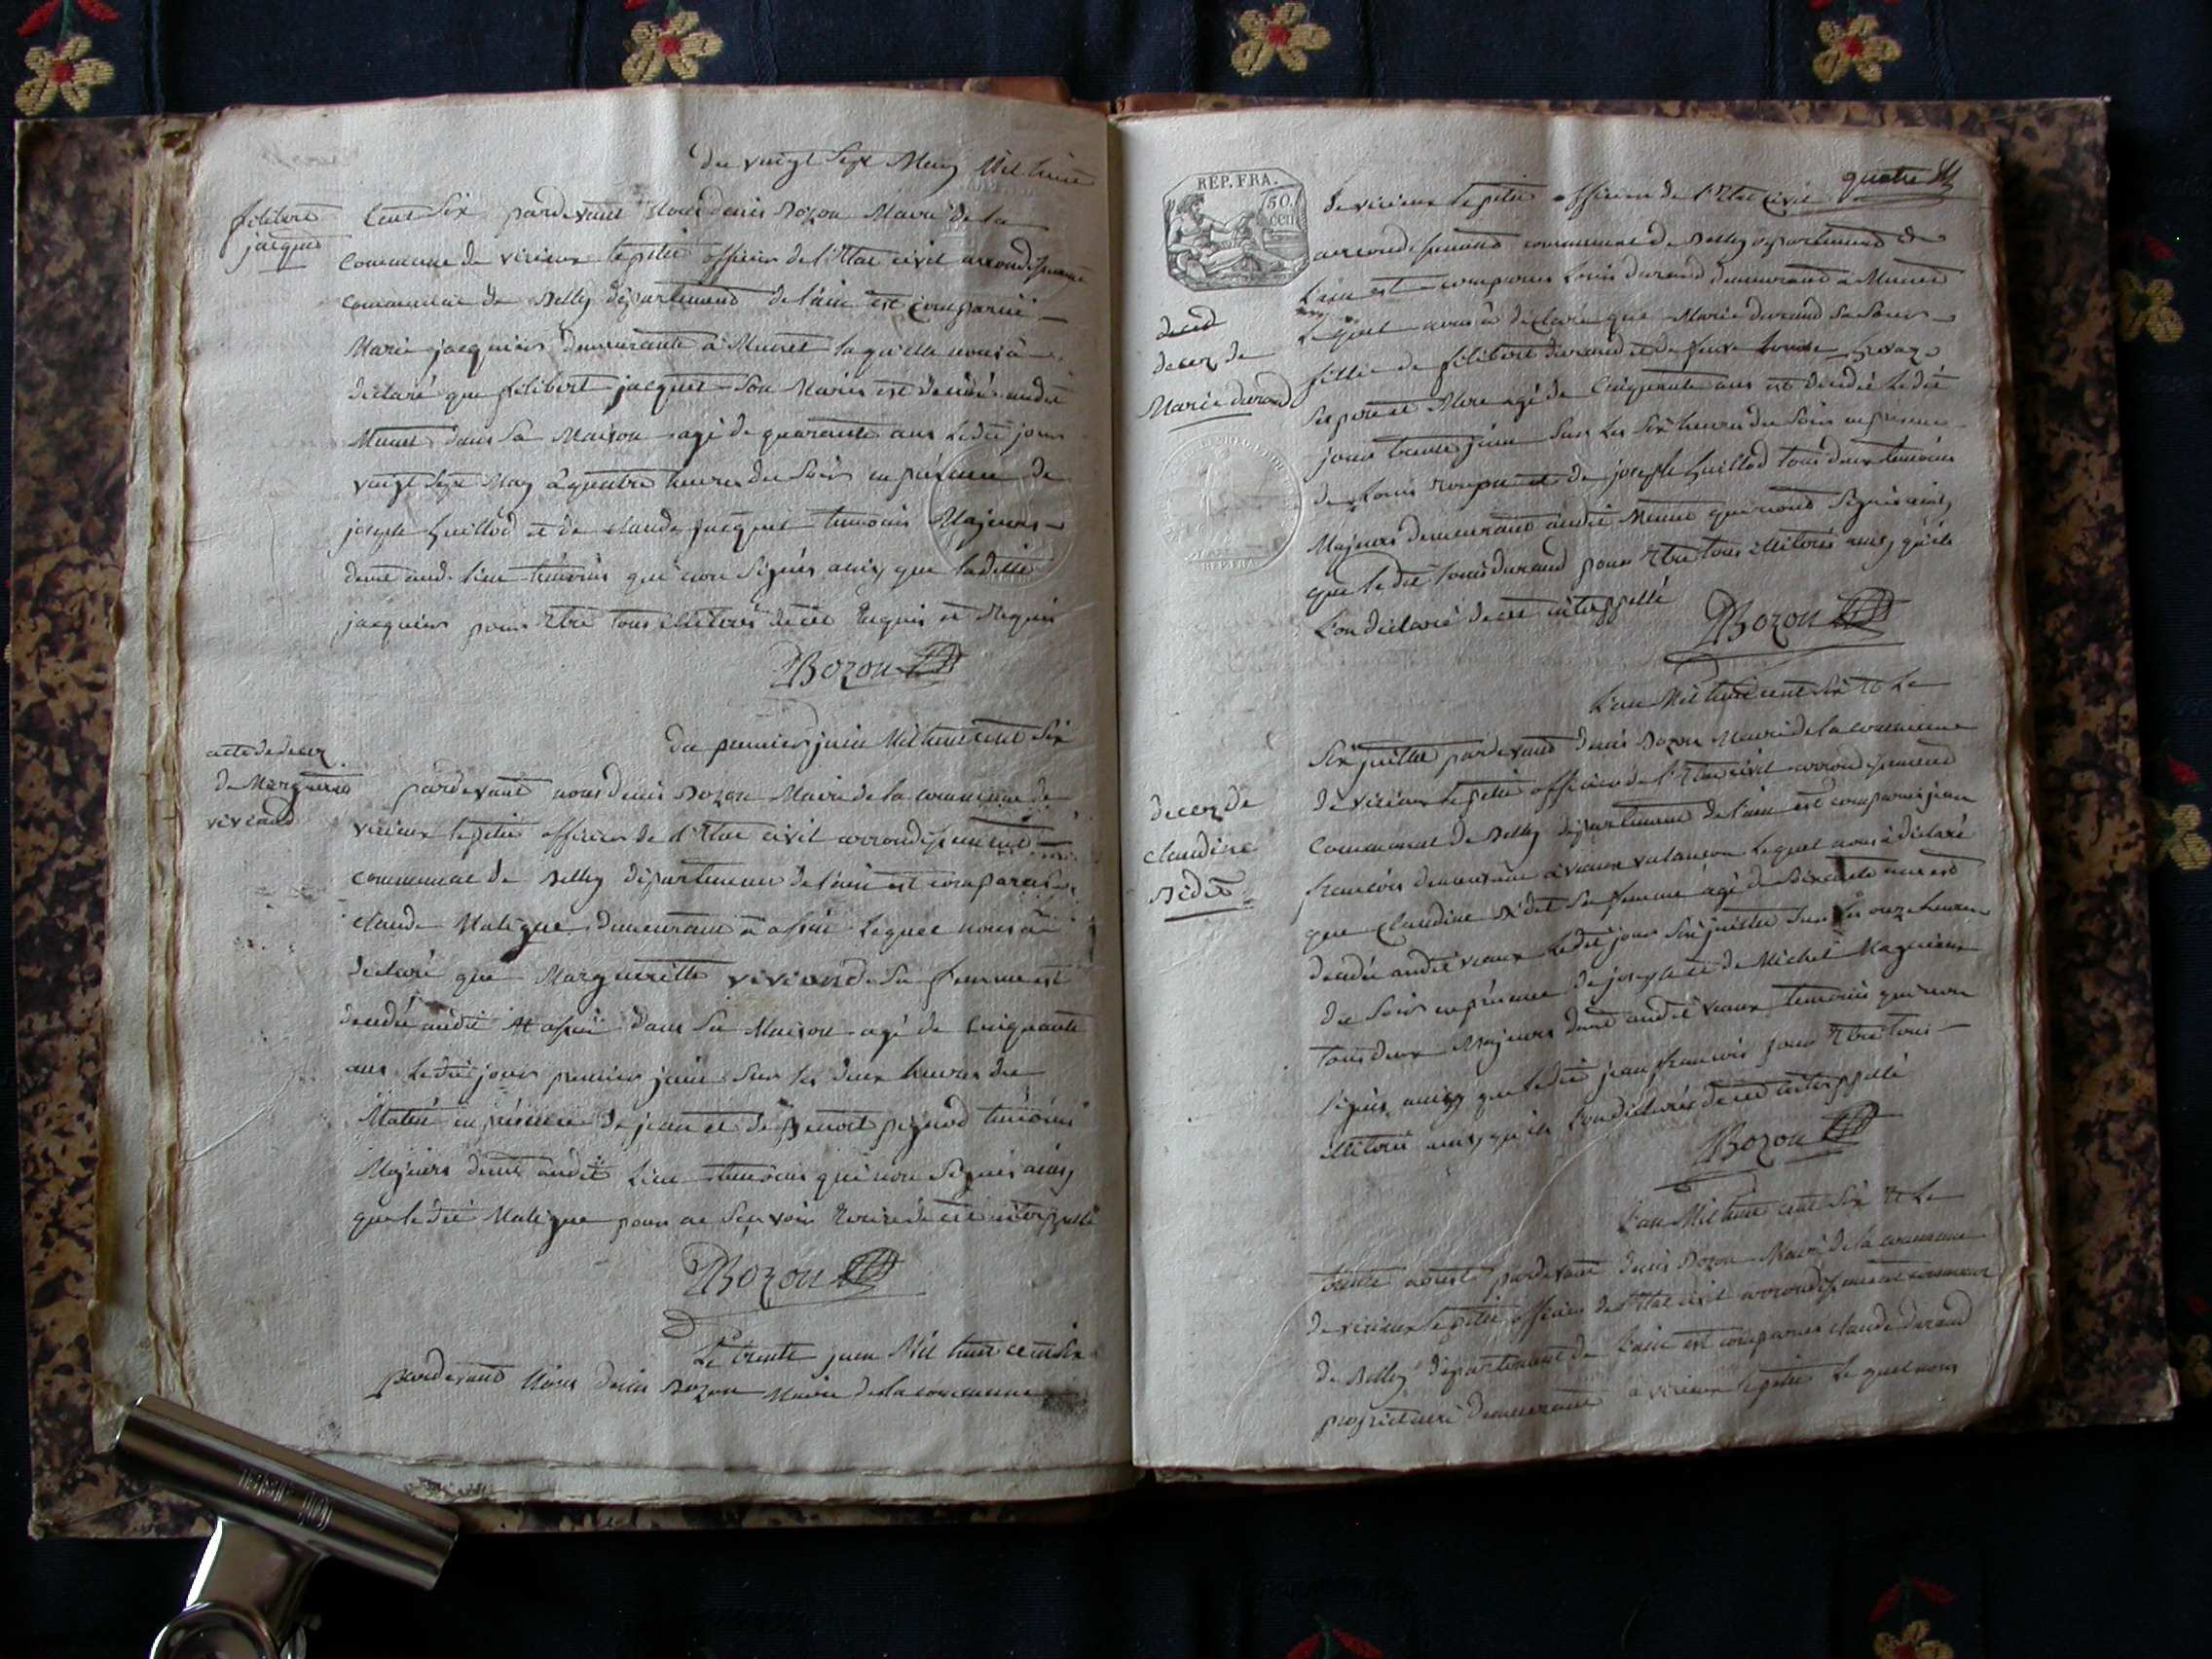 du vingt sept May Mil huit
filibert
jacquet
Cent Six pardevant Nous denis Bozon Maire de la
Commune de virieux le petit officier de l'Etat civil arrondissement
communal de Belley département de l'ain est comparue
Marie jacquier demeurante à Munet laquelle nous à
déclaré que filibert jacquet Son Maris est décédé audit
Munet dans Sa Maison agé de quarente ans Ledit jour
vingt Sept May à quatre heures du Soir en présence de
joseph Guillod et de claude jacquet temoins Majeurs
demt aud. lieu temoins qui non Signés ainsy que ladite
jacquier pour Etre tous illitérés de ce Enquis et Requis
DBozon
acte de decez
de Marguerite
viviand
du premier juin Mil huit cent Six
pardevant nous denis Bozon Maire de la commune de
virieux le petit officier de l'Etat civil arrondissement
communal de Belley département de l'ain est comparus
claude demeurant à assin Lequel nous à
déclaré que Margueritte viviand Sa femme est
décédée audit assin dans Sa Maison agé de Cinquante
ans Ledit jour premier juin Sur les deux heures du
Matin en présence de jean et de Benoit pignod temoins
Majeurs demt audit Lieu temoins qui non Signés ainsy
que le dit pour ne Sçavoir Ecrire de ce interppellé
DBozon
Le trente juin Mil huit cent Six
pardevant Nous denis Bozon Maire de la commune
REP. FRA.
50. cen
quatre
de virieux le petit officier de l'Etat civil
arrondissement communal de Belley département de
L'ain est comparus Louis durand demeurant à Munet
decez de
Marie durand
Lequel nous à déclaré que Marie durand Sa Soeur
fillie de filibert durand et de feux
Ses pere et Mere agé de Cinquante ans est décédée Ledit
jour trente juin Sur les Six heures du Soir en présence
de Louis et de joseph Guillod tous deux temoins
Majeurs demeurant audit Munet qui nont Signés ainsy
que le dit Louis durand pour Etre tous illitérés ainsy qu'ils
L'on déclaré de ce interppellé
DBozon
L'an Mil huit cent Six et Le
Six juillet pardevant denis Bozon Maire de la commune
de virieux le petit officier de l'Etat civil arrondissement
Communal de Belley département de l'ain est comparus jean
decez de
claudine
Bidet
francois demeurant à vaux Lequel nous à déclaré
que Claudine Bidet Sa femme agé de ans est
décédée audit vaux Ledit jour Six juillet Sur les onze heures
du Soir en présence de joseph et de Michel
tous deux Majeurs demt audit vaux temoins qui non
Signés ainsy que Ledit jean francois pour Etre tous
illitérés ainsy qu'ils L'on déclarés de ce interppellé
DBozon
L'an Mil huit cent Six et Le
trente aoust pardevant denis Bozon Maire de la commune
de virieux le petit officier de l'Etat civil arrondissement communal
de Belley département de L'ain est comparus claude durand
propriétaire demeurant à virieux le petit Lequel nous